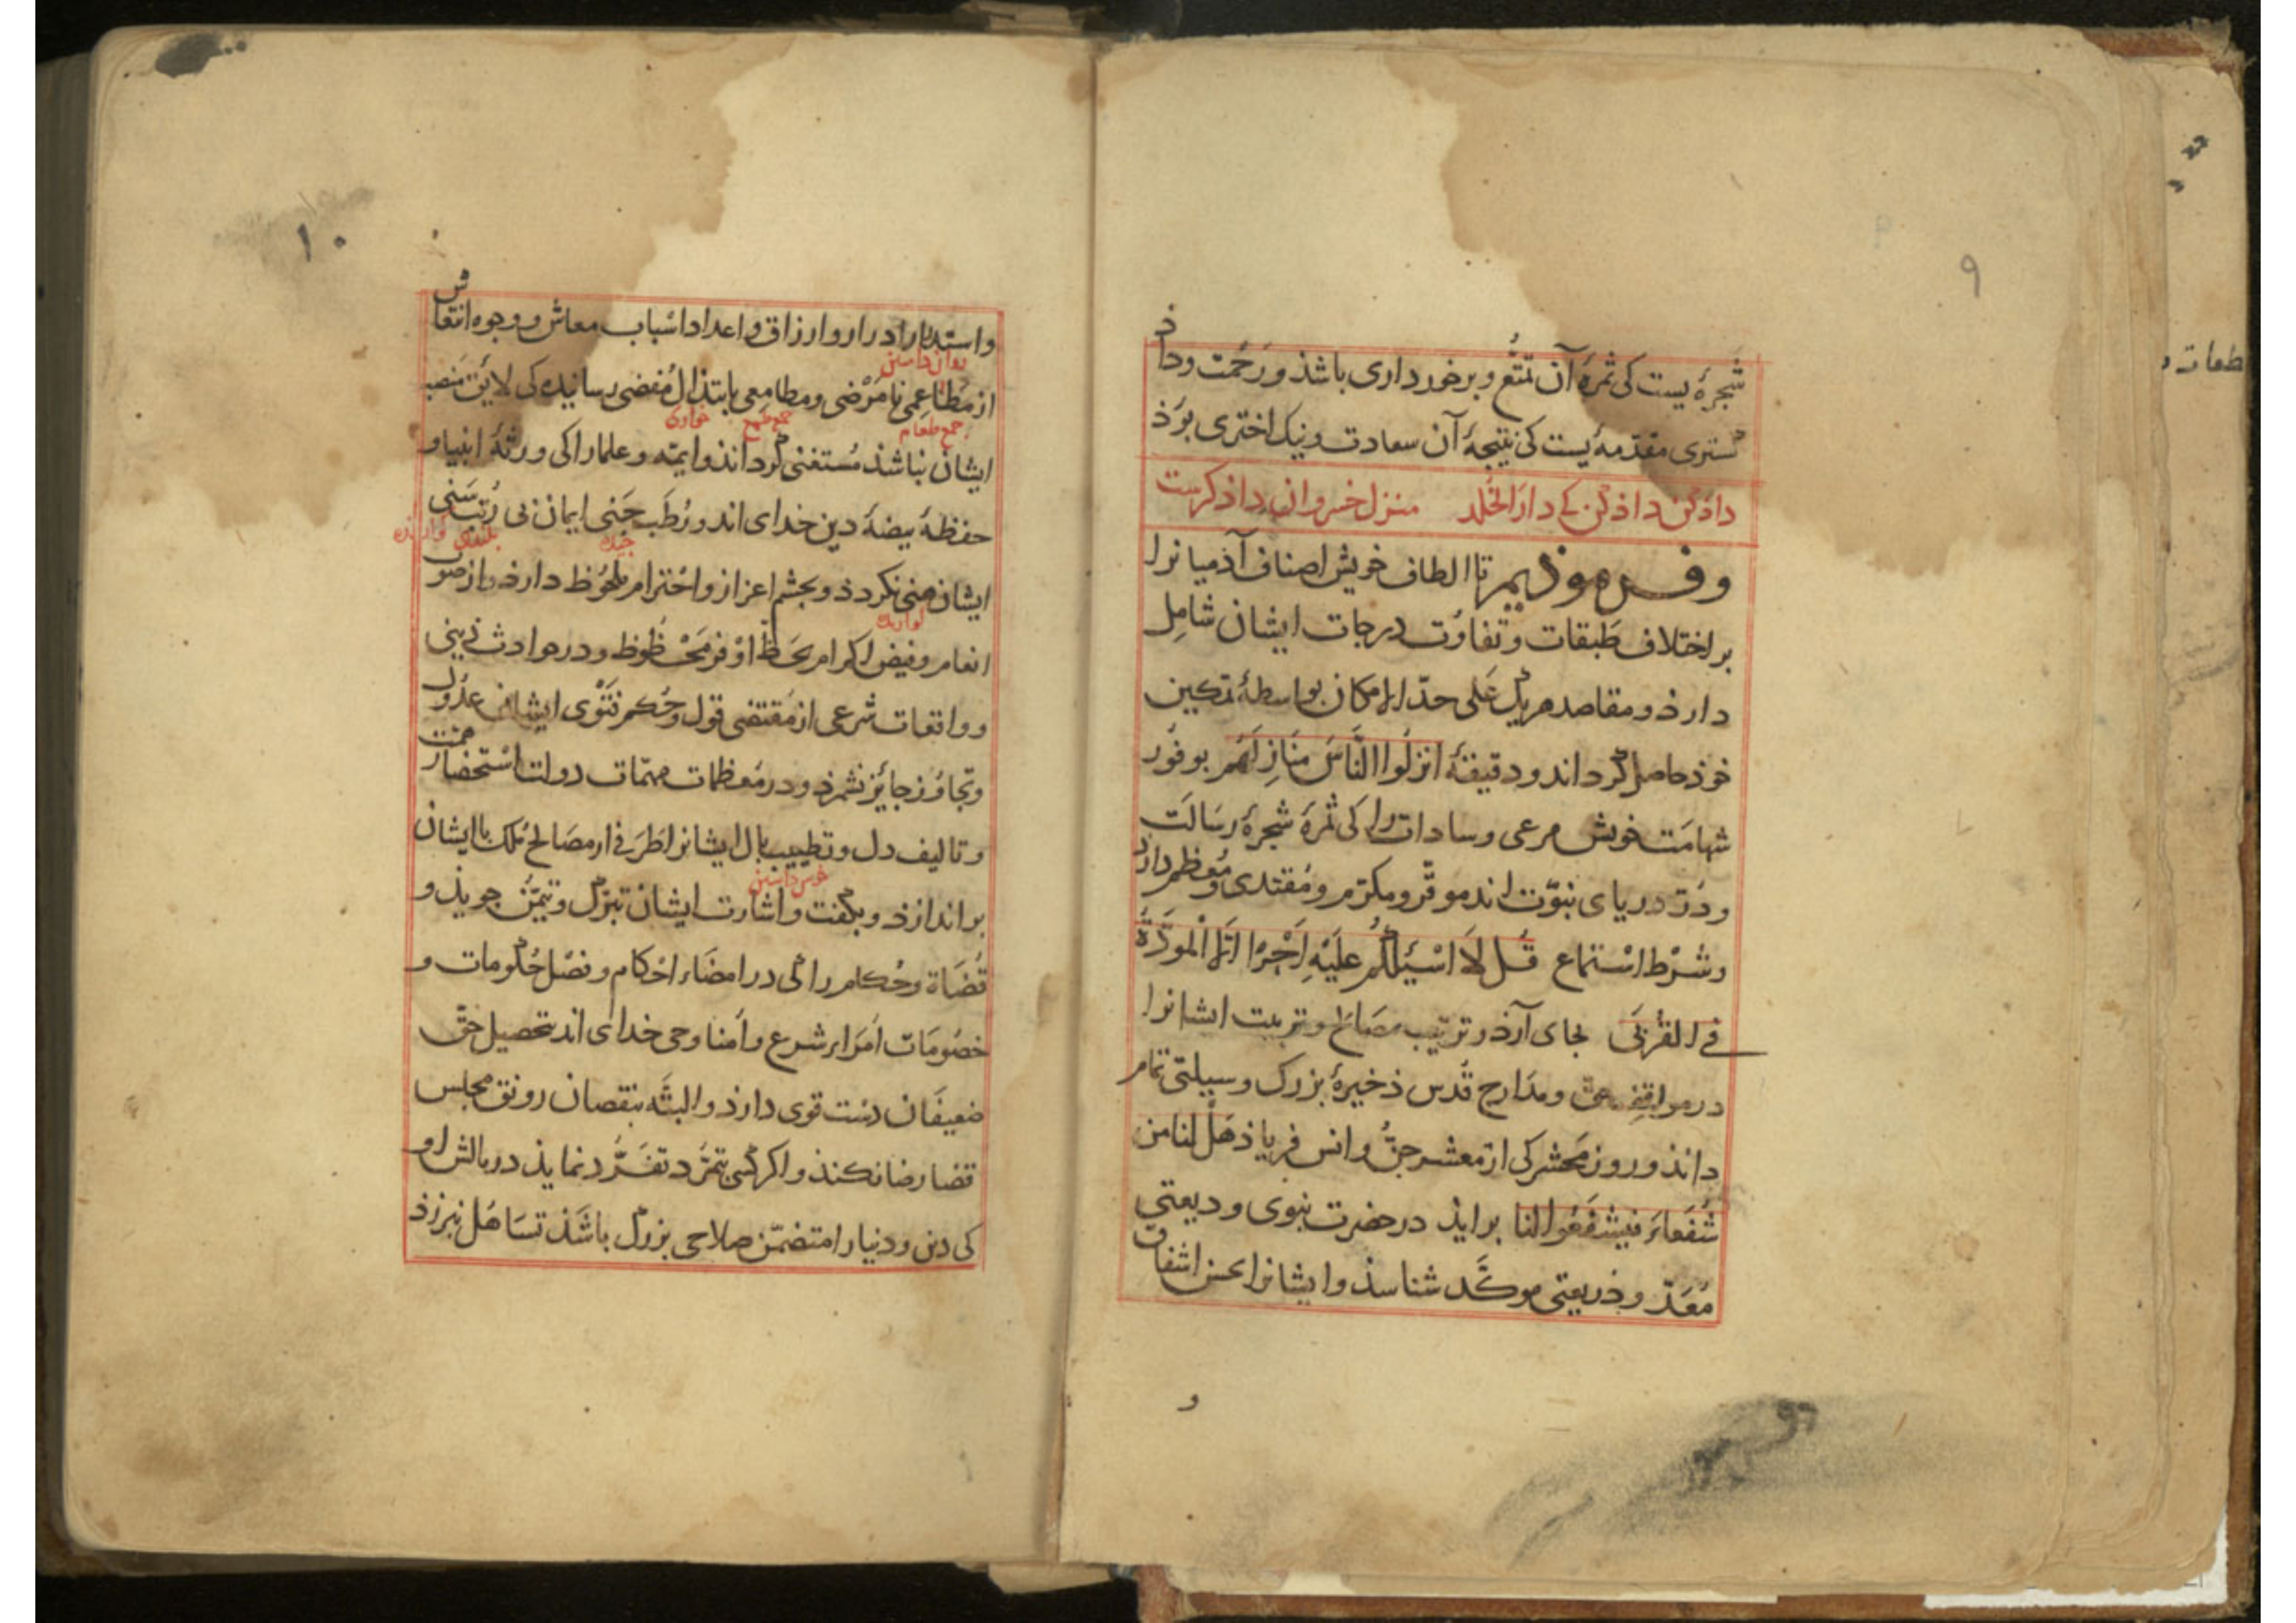 ۹
شجرهٔ یست کی ثمرهٔ آن تمتّع و برخورداری باشذ و رحمت و داذ
کستری مقدّمهٔ یست کی نتیجهٔ آن سعادت و نیک اختری بوَذ
داذ کن داذ کن کی دار الخلد منزل خسروان داذکرست
و فرموذیم تا الطاف خویش اصناف آذمیانرا
بر اختلاف طبقات و تفاوُت درجات ایشان شامِل
دارذ و مقاصد هریک علی حدّ الامکان بواسطهٔ تمکین
خوذ حاصل کرداند و دقیقهٔ انزلُوا النَّاسَ مَنَازِلَهُم بوفور
شهامَت خویش مرعی و سادات را کی ثمرهٔ شجرهٔ رسَالَت
و دُرّ دریای نبوّت اند موقّر و مکرّم و مُقتدی و مُعظم دارد
و شرْط استماع قُل لاَ اسْئَلُكُم عَلَيْهِ اَجْرًا اِلَّا الْمَوَدَّةَ
فی القُربَى بجای آرذ و ترتیب مصَالح و تربیت ایشانرا
در مواقف حقّ و مدَارج قُدس ذخیرهٔ بزرک و سیلتی تمام
داند و روز محشر کی از معشر جنّ و انس فریاذ هَل لنا من
شُفَعاءَ فیشفَعُوا لنا برایذ در حضرت نبوی و دیعتی
مُعَدّ و ذریعتی موکَّد شناسذ و ایشانرا بحسن اشفاق
و
۱۰
و استدرار ادرار و ارزاق و اعداد اسباب معاش و وجوه انتعاش
روان داشتن
از مَطاعِمی نامَرْضی و مطامعی بابتذال مُفضی رسانیده کی لایق منصب
جمع طعام جمع طمع خواری
ایشان نباشذ مُستغنی کرداند و ایمّه و علما را کی ورثهٔ انبیا و
حفظهٔ بیضهٔ دین خدای اند و رُطَب جَنی ایمان بی رُتبت سَنی
چیده بلندی
ایشان هنی نکردذ و بچشم اعزاز و احترام ملحُوظ دارذ و از صوب
انعام و فیض اکرام بحَظّ اوْفر مَحْظُوظ و در حوادث دینی
و واقعات شرعی از مُقتضی قول و حُکم فتْوی ایشان عدُول
و تجاوُز جایز نشمرذ و در مُعظمات مهمّات دولت استحضار همّت
و تالیف دل و تطییب بال ایشانرا طَرَفی از مصَالح مُلک با ایشان
خوش داشتن
براندازذ و بکفت و اشارت ایشان تبرّک و تیمّن جویذ و
قُضَاة و حُکّام را کی در امضَاء احْکام و فصْل حُکومات و
خصُومَات اُمَراء شرع و اُمنا وحی خدای اند تحصیل حقّ
ضعیفَان دست قوی دارذ و البتّه بنقصان رونق مجلس
قضا رضا نکنذ و اکر کسی تمَرّد و تفَرُّد نمایذ در مالش او
کی دین و دنیا را متضمّن صلاحی بزرک باشَذ تسَاهُل نبرزذ